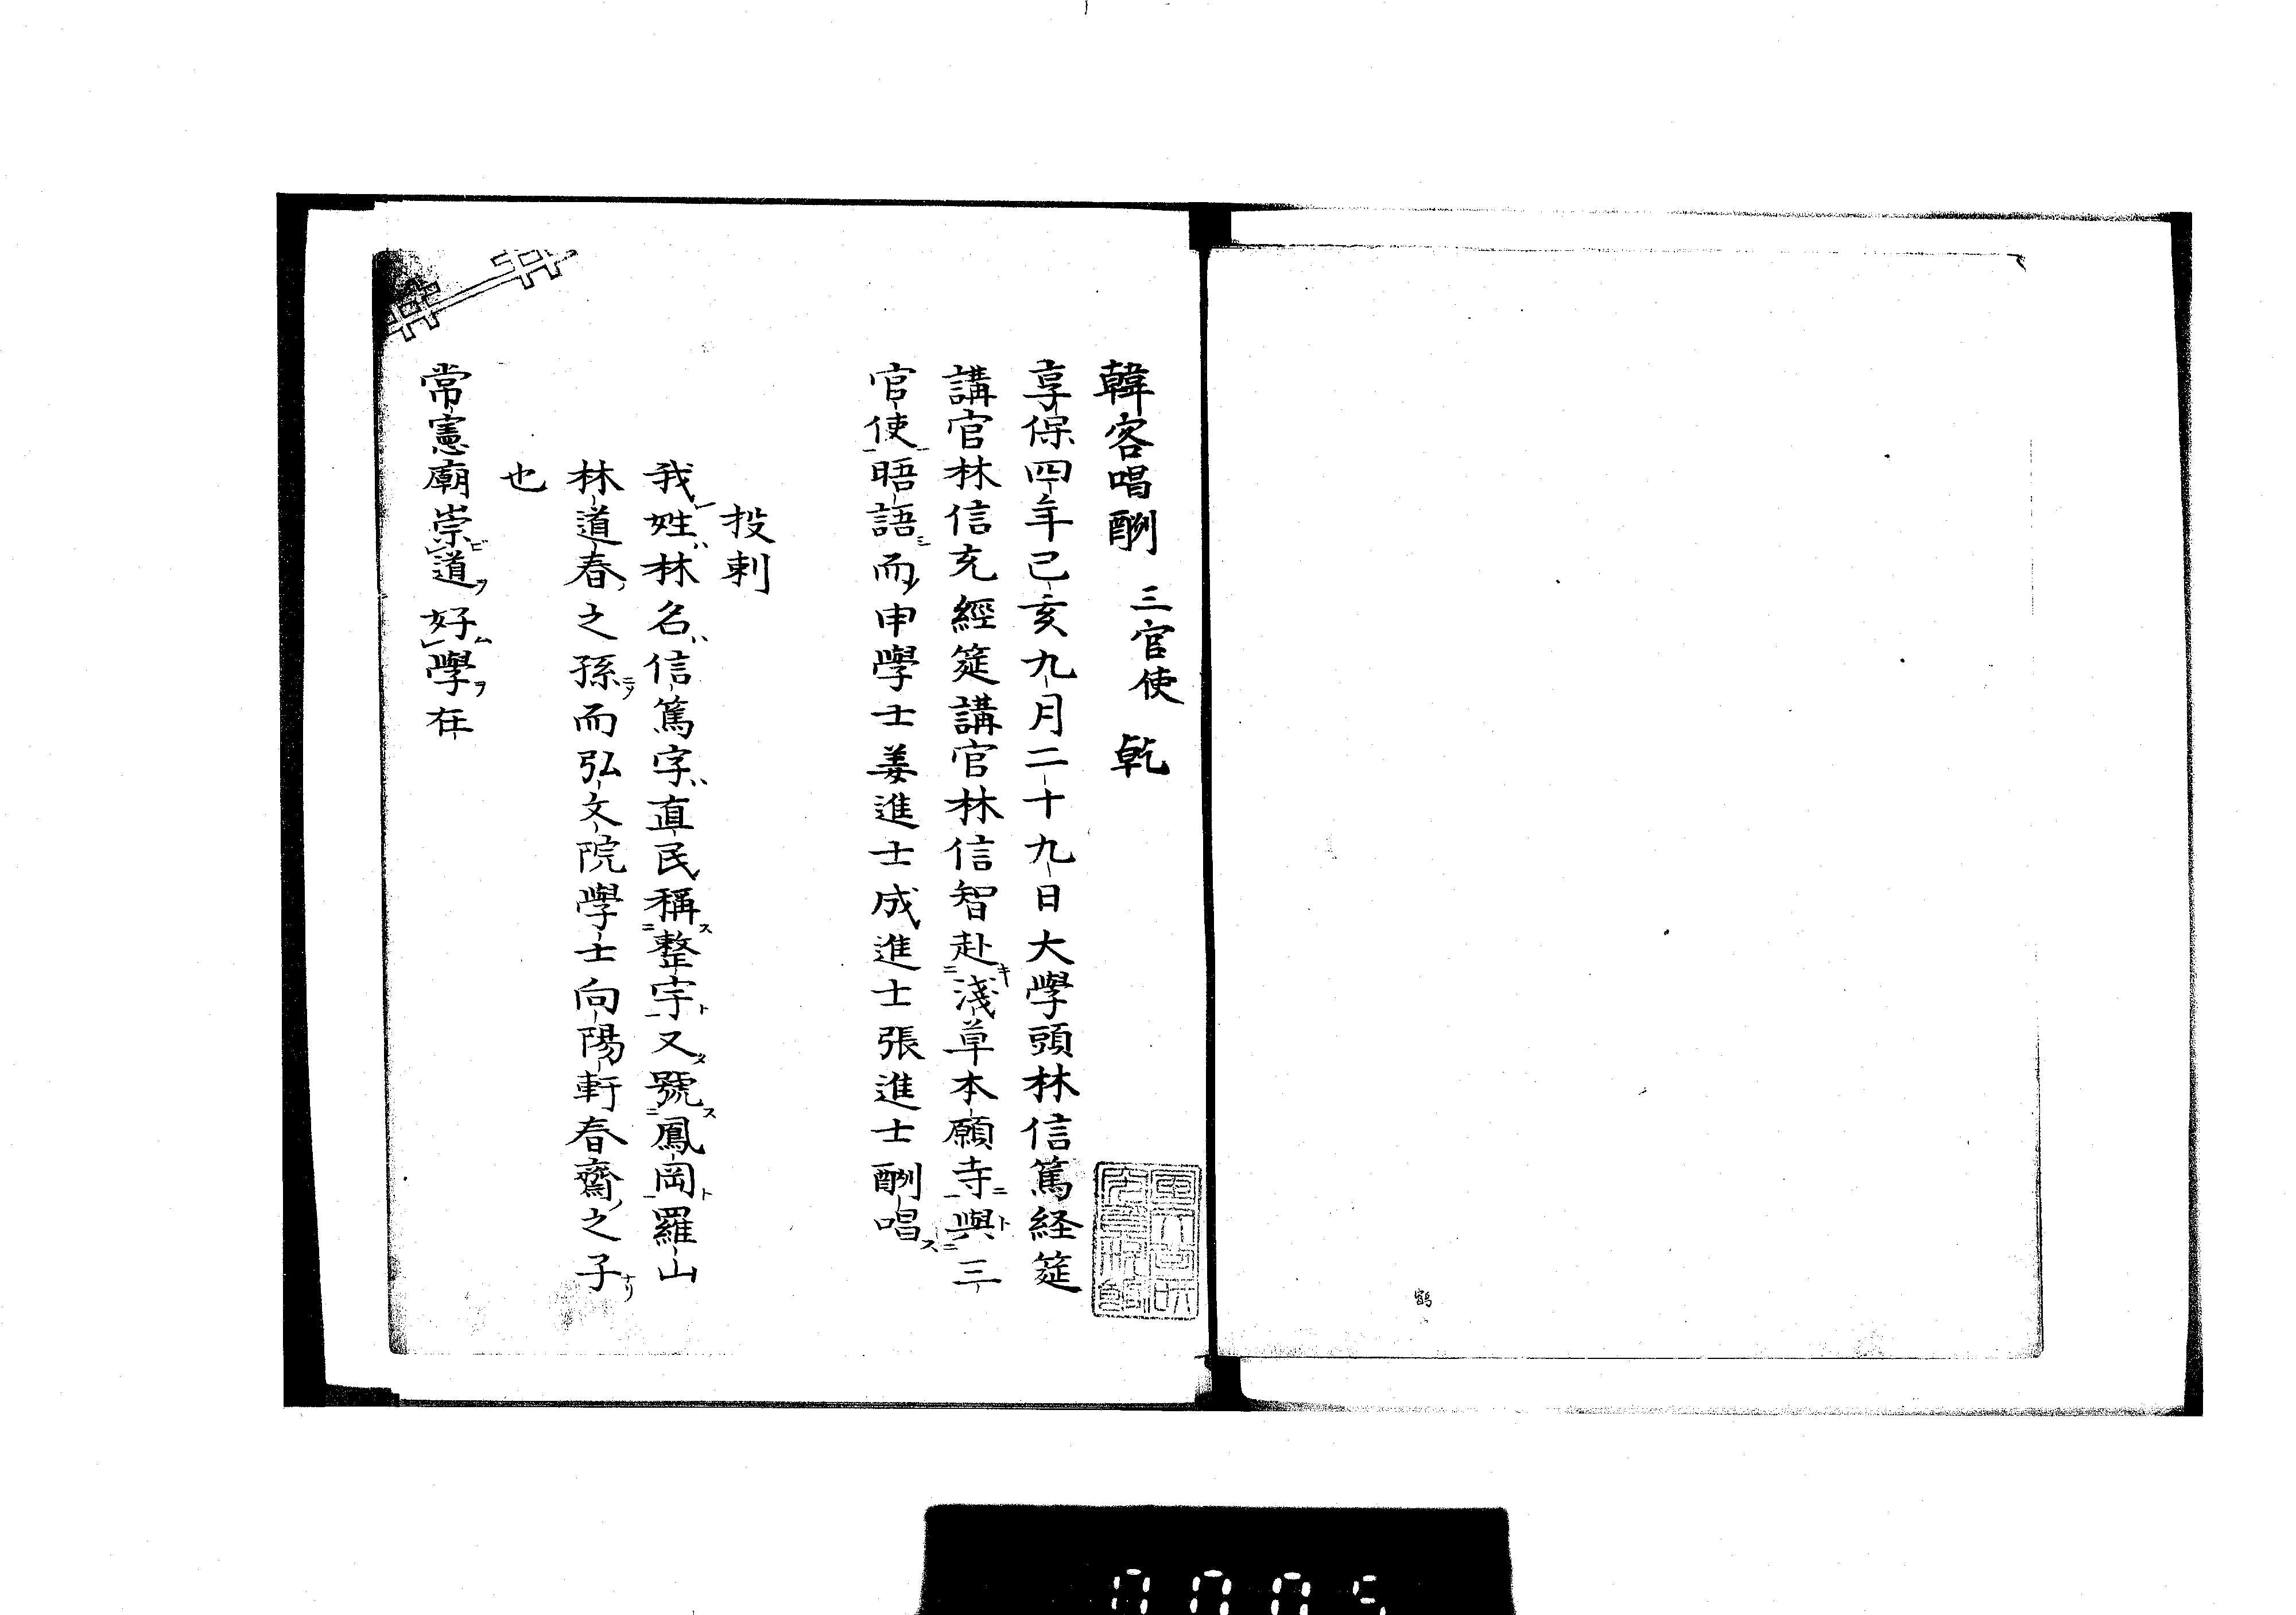 韓客唱酬 三官使 乾
享保四年己亥九月二十九日大學頭林信篤経筵
講官林信充經筵講官林信智赴淺草本願寺與三
官使晤語而申學士姜進士成進士張進士酬唱
投刺
我姓林名信篤字直民稱整宇又號鳳岡羅山
林道春之孫而弘文院學士向陽軒春齋之子
也
常憲廟崇道好學在